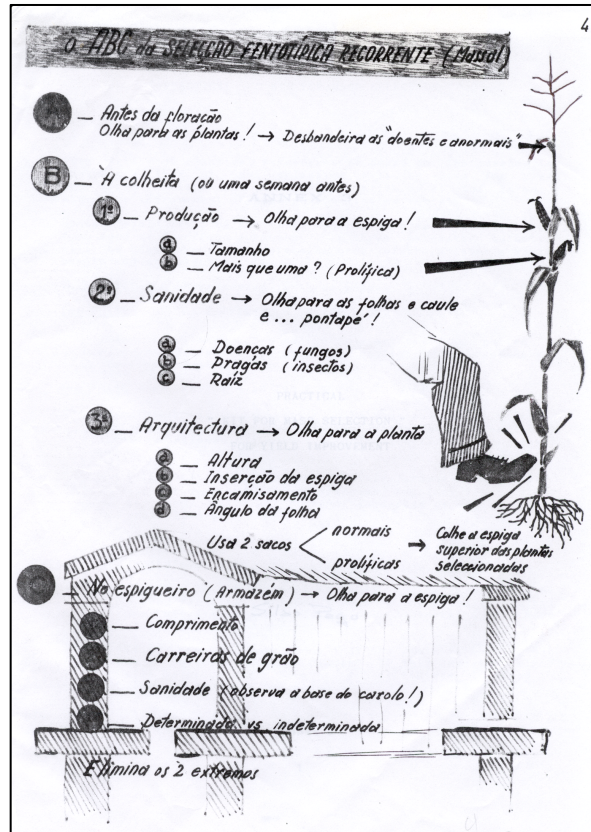 4
O ABC da SELECÇÃO FENTOTÍPICA RECORRENTE (Massal)
A _ Antes da floração
Olha para as plantas! → Desbandeira as "doentes e anormais"
B _ 'A colheita (ou uma semana antes)
1º _ Produção → Olha para a espiga!
a _ Tamanho
b _ Mais que uma? (Prolífica)
2º _ Sanidade → Olha para as folhas e caule
e ... pontapé!
a _ Doenças (fungos)
b _ Pragas (insectos)
c _ Raíz
3º _ Arquitectura → Olha para a planta
a _ Altura
b _ Inserção da espiga
c _ Encamisamento
d _ Ângulo da folha
Usa 2 sacos < normais
prolíficas
→ Colhe a espiga
superior das plantas
seleccionadas
_ No espigueiro (Armazém) → Olha para a espiga!
_ Comprimento
_ Carreiras de grão
_ Sanidade (observa a base do carolo!)
_ Determinada vs indeterminada
Elimina os 2 extremos